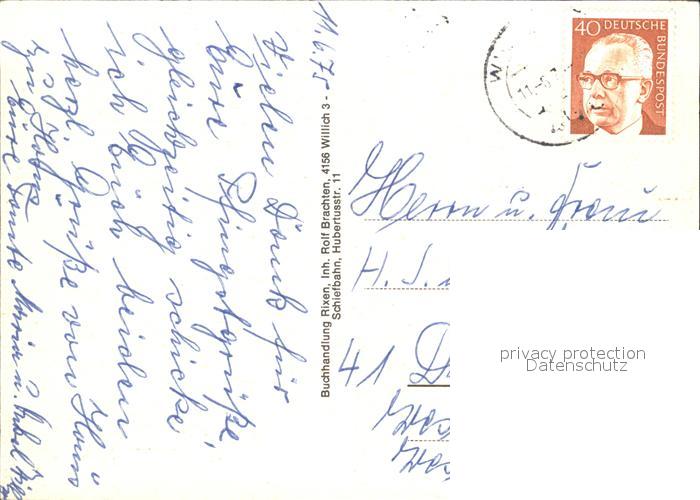 11.6.75
Vielen Dank für
Eure Pfingstgrüße!
gleichzeitig schicke
ich Euch beiden
herzl. Grüße von Haus
zu Haus
Eure Tante Maria u.
Buchhandlung Rixen, Inh. Rolf Brachten, 4156 Willich 3 -
Schiefbahn, Hubertusstr. 11
40 DEUTSCHE
BUNDESPOST
Herrn u. Frau
H. J.
41
privacy protection
Datenschutz